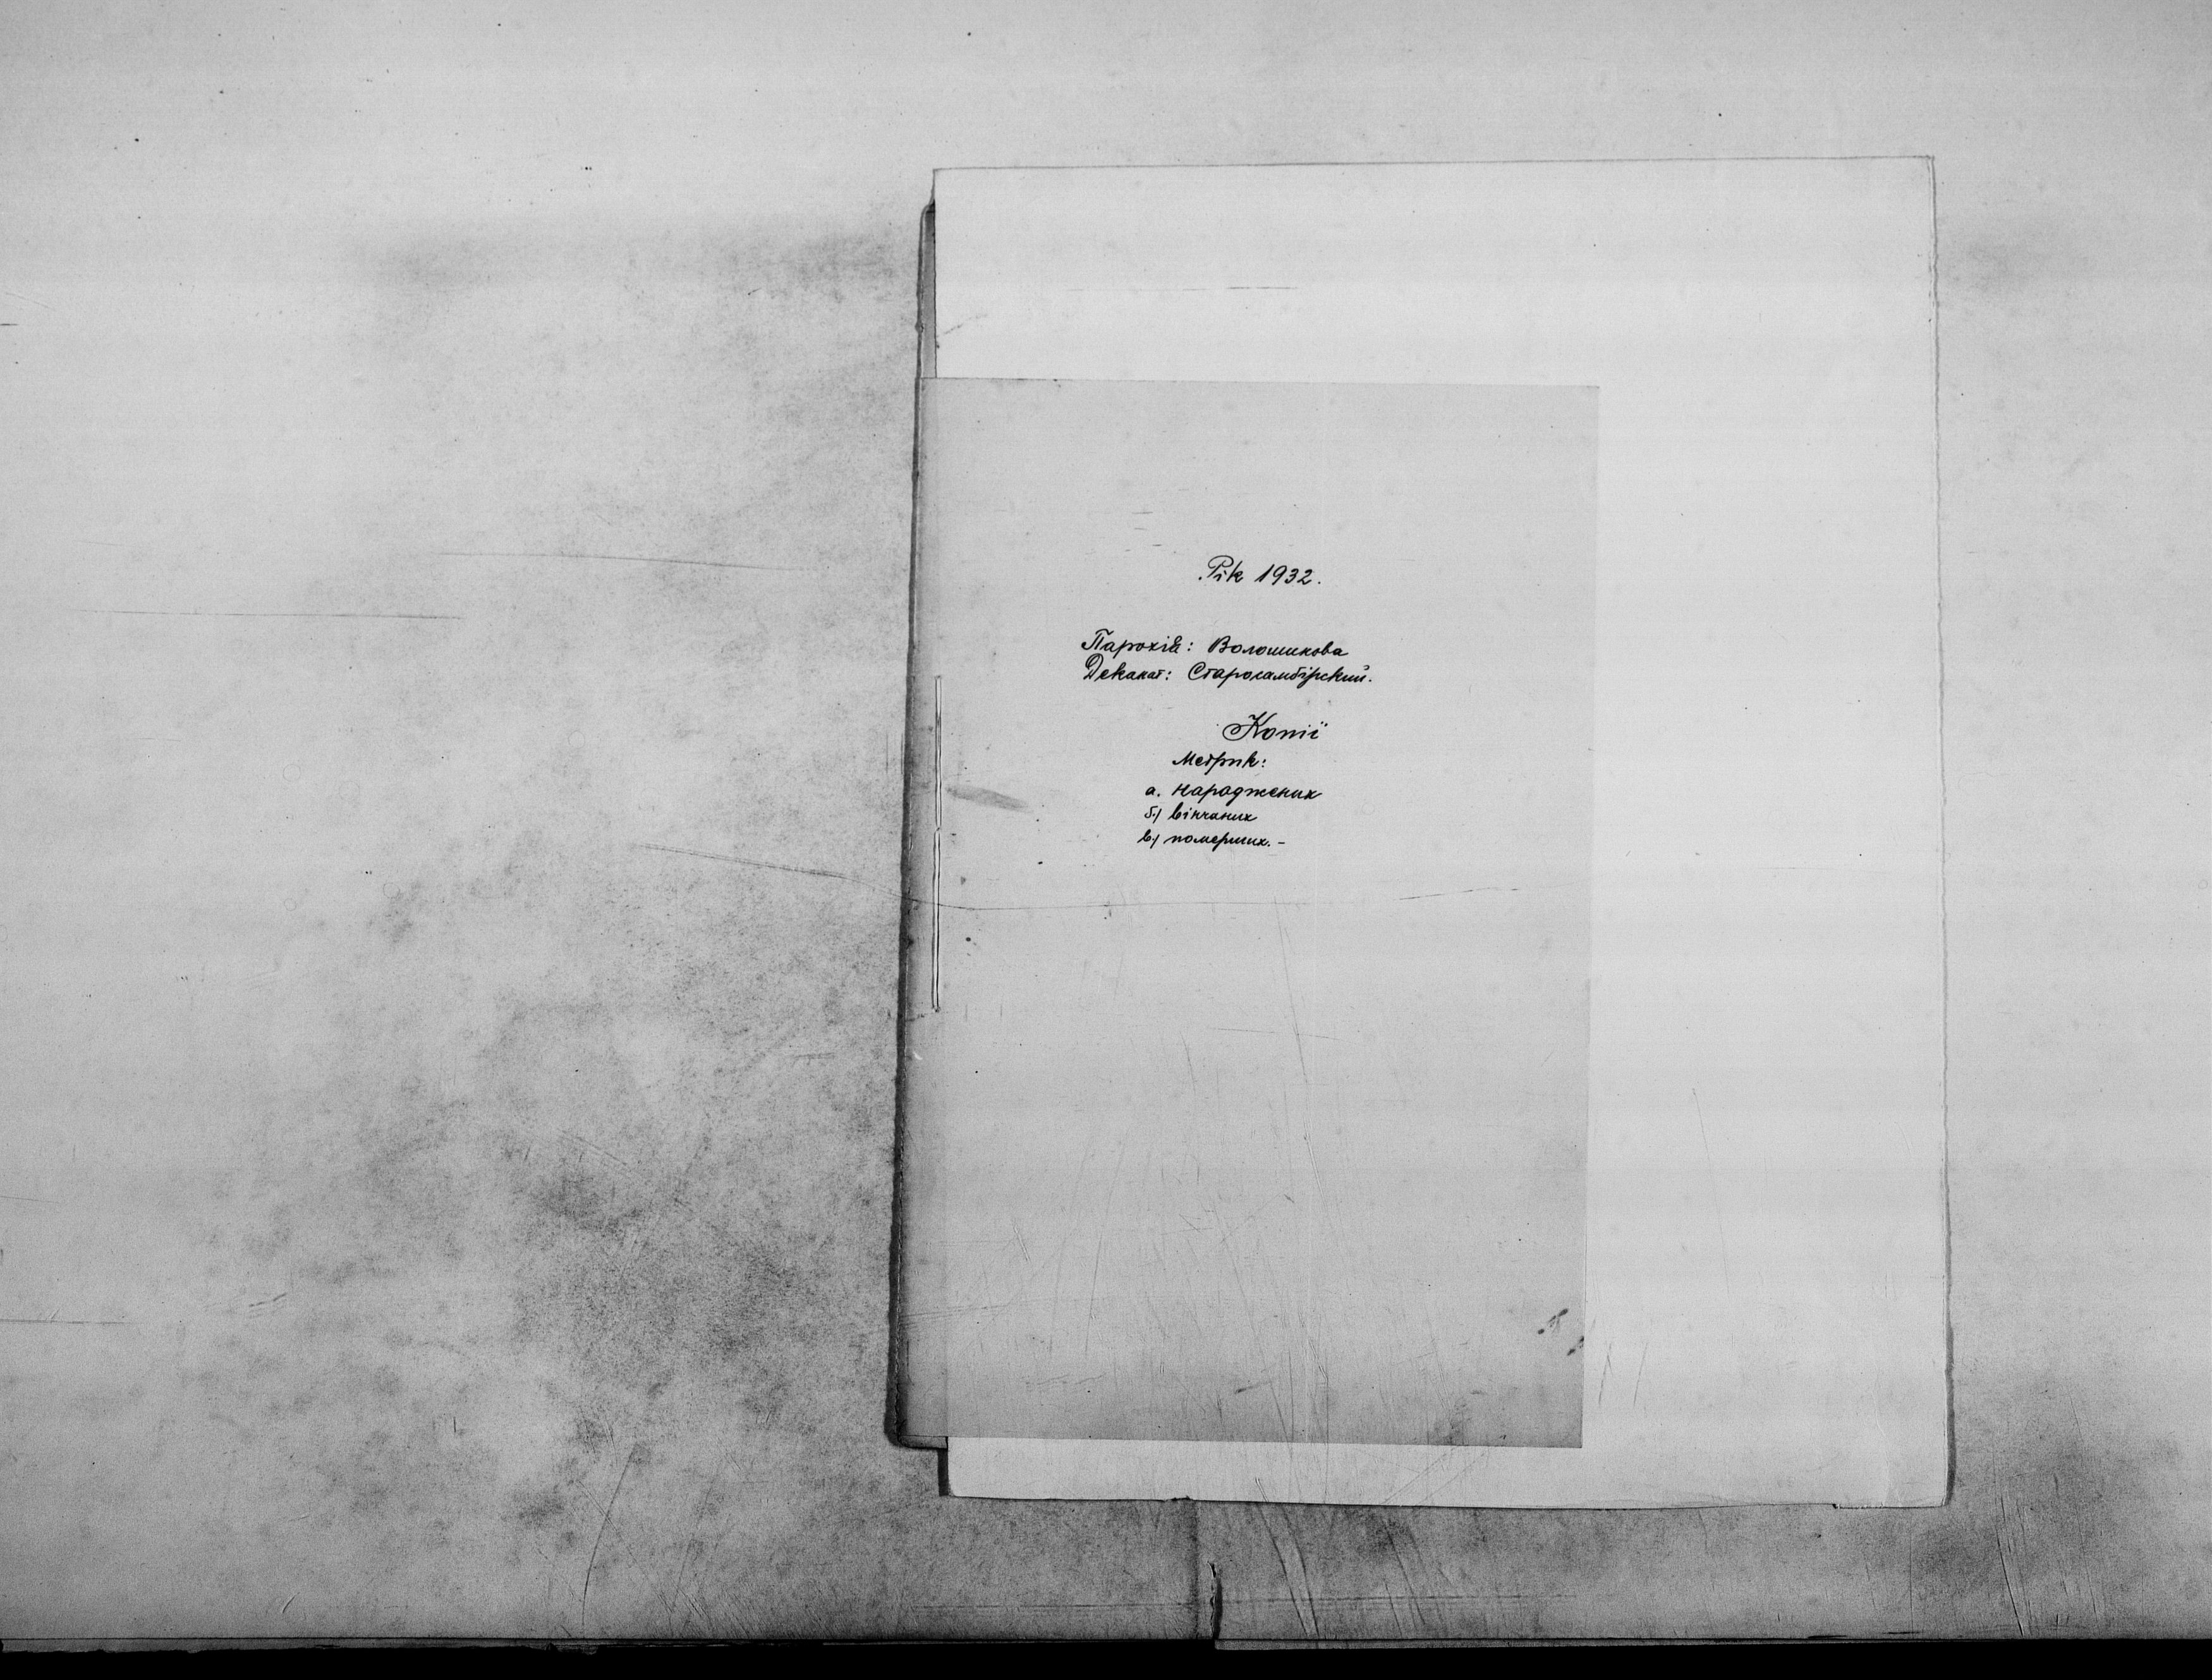 Рік 1932.
Парохія: Волошинова
Деканат: Старосамбірский.
Копії
Метрик:
а. народжених
б) вінчаних
в) померших. -